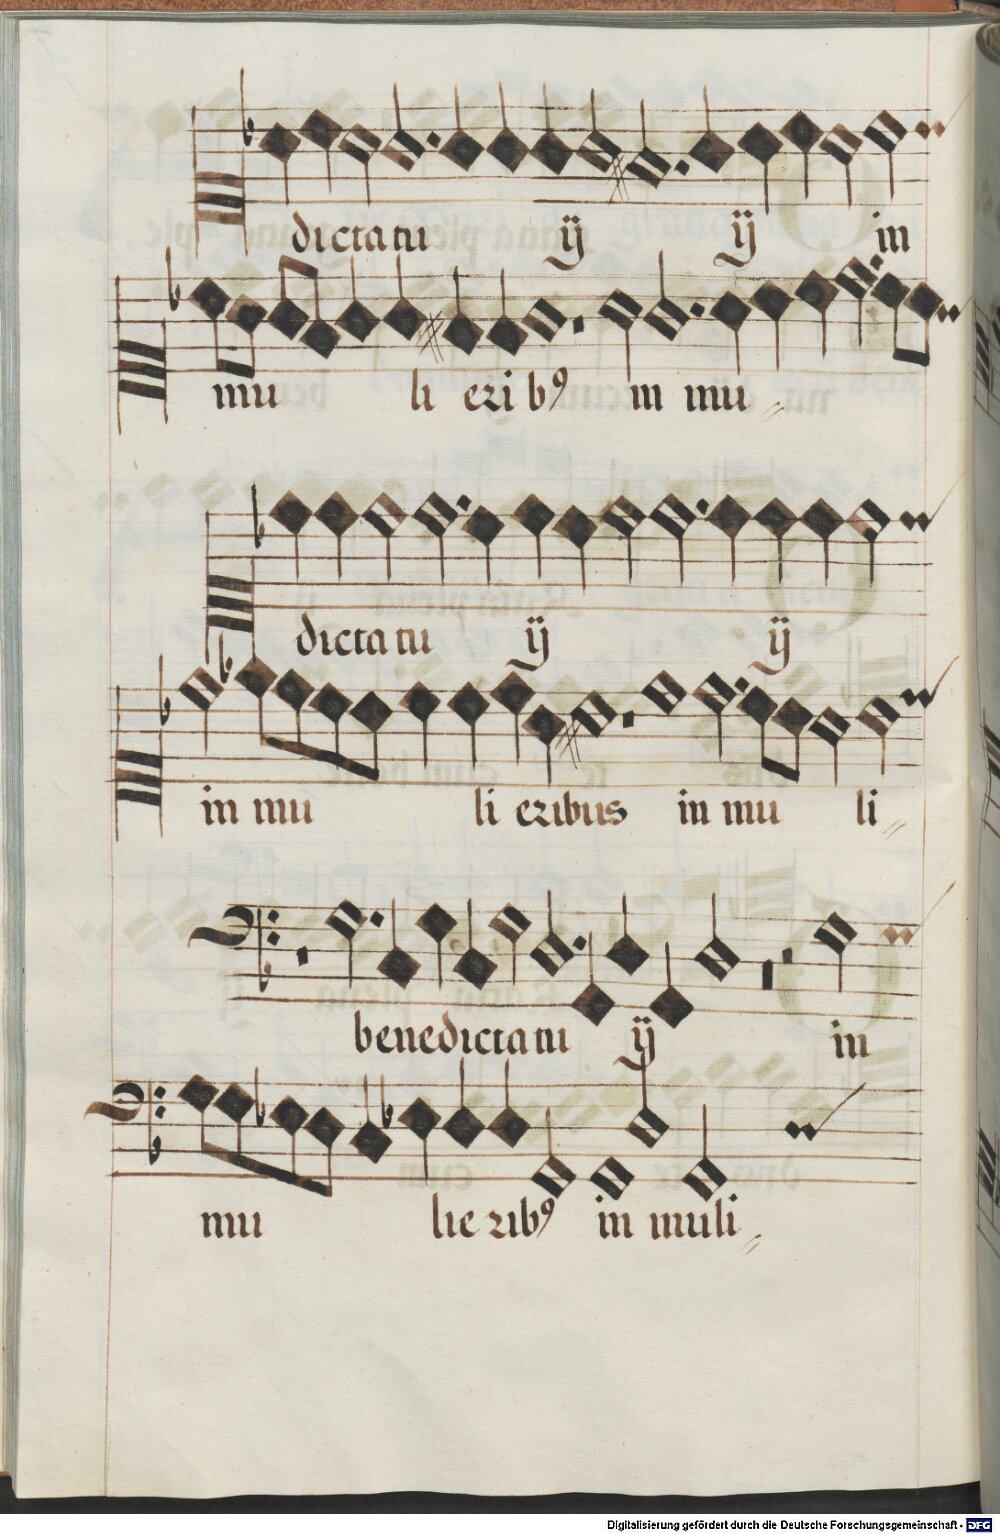 dicta tu ij ij in
mu li eri b⁹ in mu
dicta tu ij ij
in mu li eribus in mu li
benedicta tu ij in
mu lie rib⁹ in muli
Digitalisierung gefördert durch die Deutsche Forschungsgemeinschaft - DFG